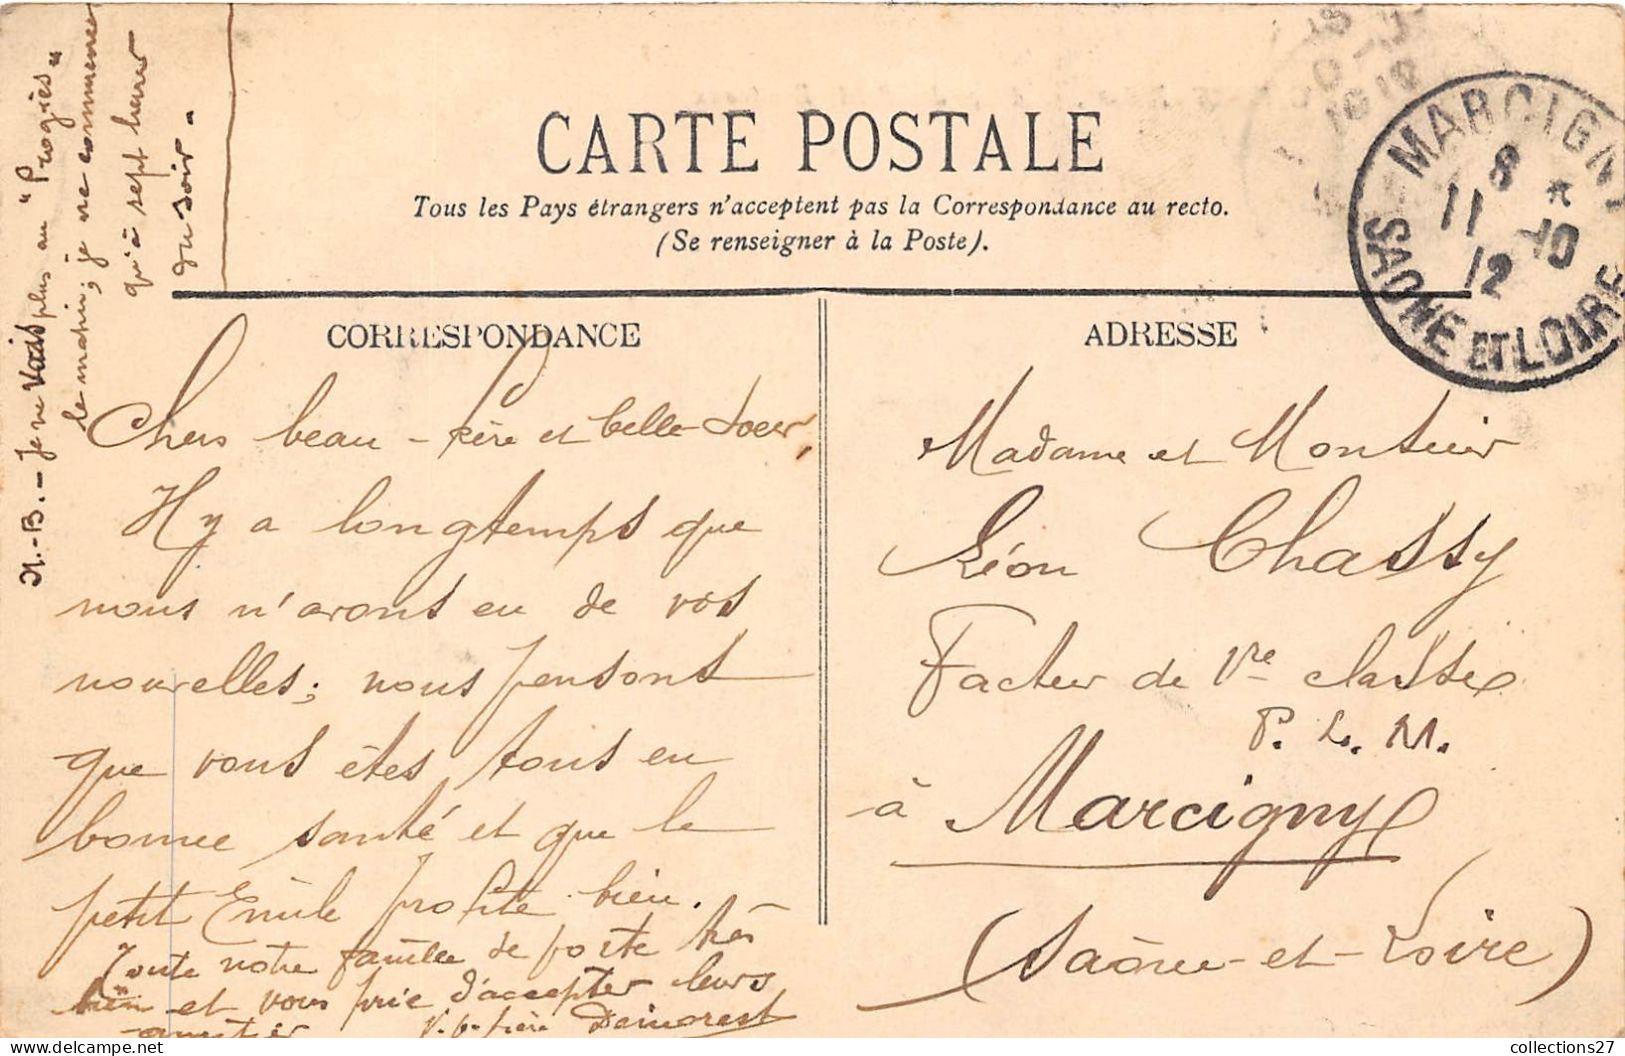 N.-B.- Je ne vais plus au "Progrès"
le matin; je ne commence
qu'à sept heures
du soir.
CARTE POSTALE
Tous les Pays étrangers n'acceptent pas la Correspondance au recto.
(Se renseigner à la Poste).
MARCIGNY
8 *
11 -10
12
SAONE ET LOIRE
CORRESPONDANCE
Chers beau-père et belle-soeur,
Il y a longtemps que
nous n'avons eu de vos
nouvelles; nous pensons
que vous êtes tous en
bonne santé et que le
petit Emile profite bien.
Toute notre famille se porte très
bien et vous prie d'accepter leurs
amitiés
Demorest
ADRESSE
Madame et Monsieur
Léon Chassy
Facteur de 1re classe
P. L. M.
à Marcigny
(Saône-et-Loire)
collections27